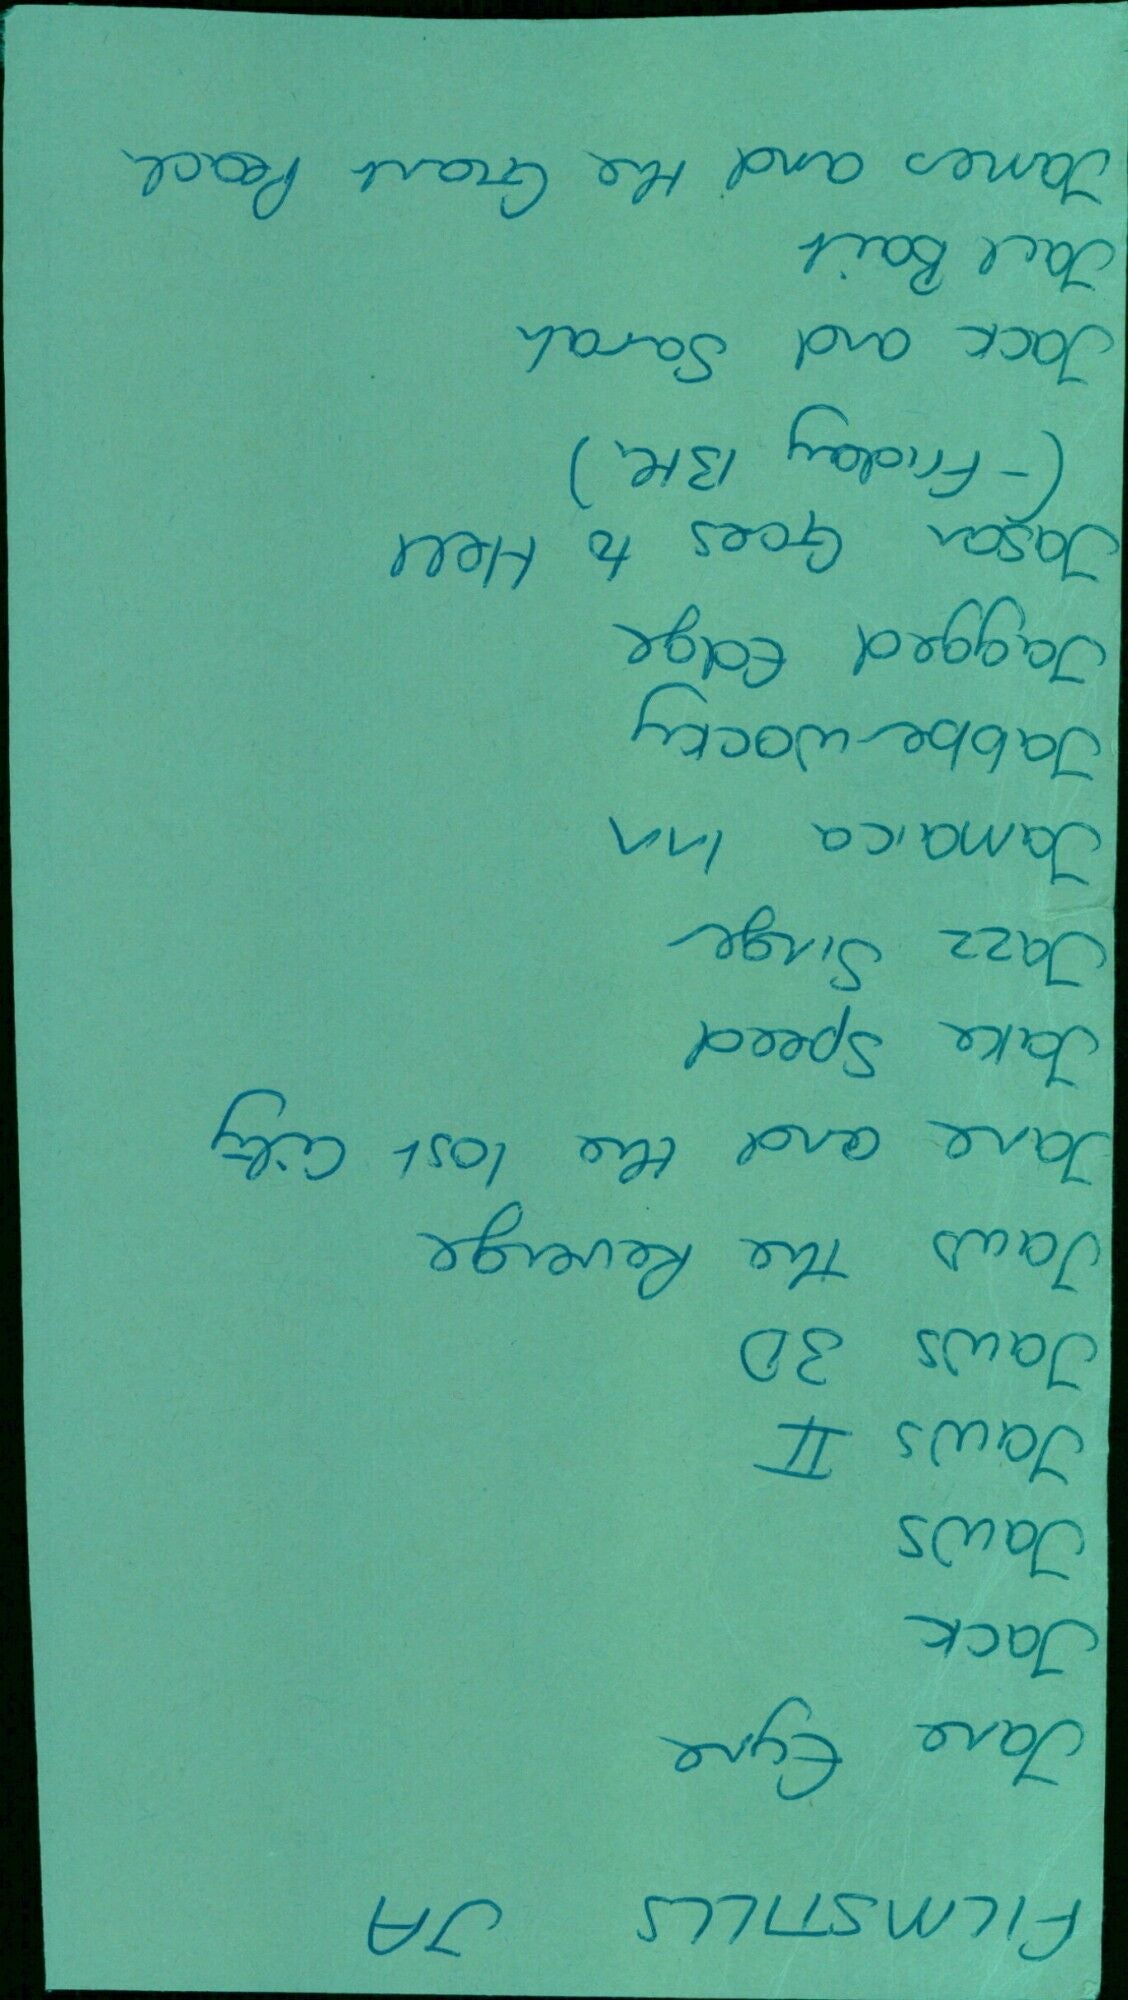 FILMSTILLS JA
Jane Eyre
Jack
Jaws
Jaws II
Jaws 3D
Jaws The Revenge
Jane and the lost City
Jake Speed
Jazz Singer
Jamaica Inn
Jabberwocky
Jagged Edge
Jason Goes to Hell
(-Friday 13th)
Jack and Sarah
Jail Bait
James and the Giant Peach